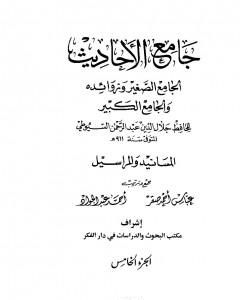 جامع الأحاديث
الجامع الصغير وزوائده
والجامع الكبير
للحافظ جلال الدين عبد الرحمن السيوطي
المتوفى سنة ٩١١ هـ
المسانيد والمراسيل
جمع وترتيب
عباس أحمد صقر أحمد عبد الجواد
إشراف
مكتب البحوث والدراسات في دار الفكر
الجزء الخامس